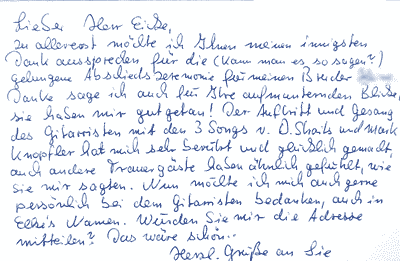 Lieber Herr Eicke,
zu allererst möchte ich Ihnen meinen innigsten
Dank aussprechen für die (kann man es so sagen?)
gelungene Abschiedszeremonie für meinen Bruder
Danke sage ich auch für Ihre aufmunternden Blicke,
sie haben mir gut getan! Der Auftritt und Gesang
des Gitarristen mit den 3 Songs v. D. Straits und Mark
Knopfler hat mich sehr berührt und glücklich gemacht,
auch andere Trauergäste haben ähnlich gefühlt, wie
sie mir sagten. Nun möchte ich mich auch gerne
persönlich bei dem Gitarristen bedanken, auch in
Elke's Namen. Würden Sie mir die Adresse
mitteilen? Das wäre schön..
Herzl. Grüße an Sie